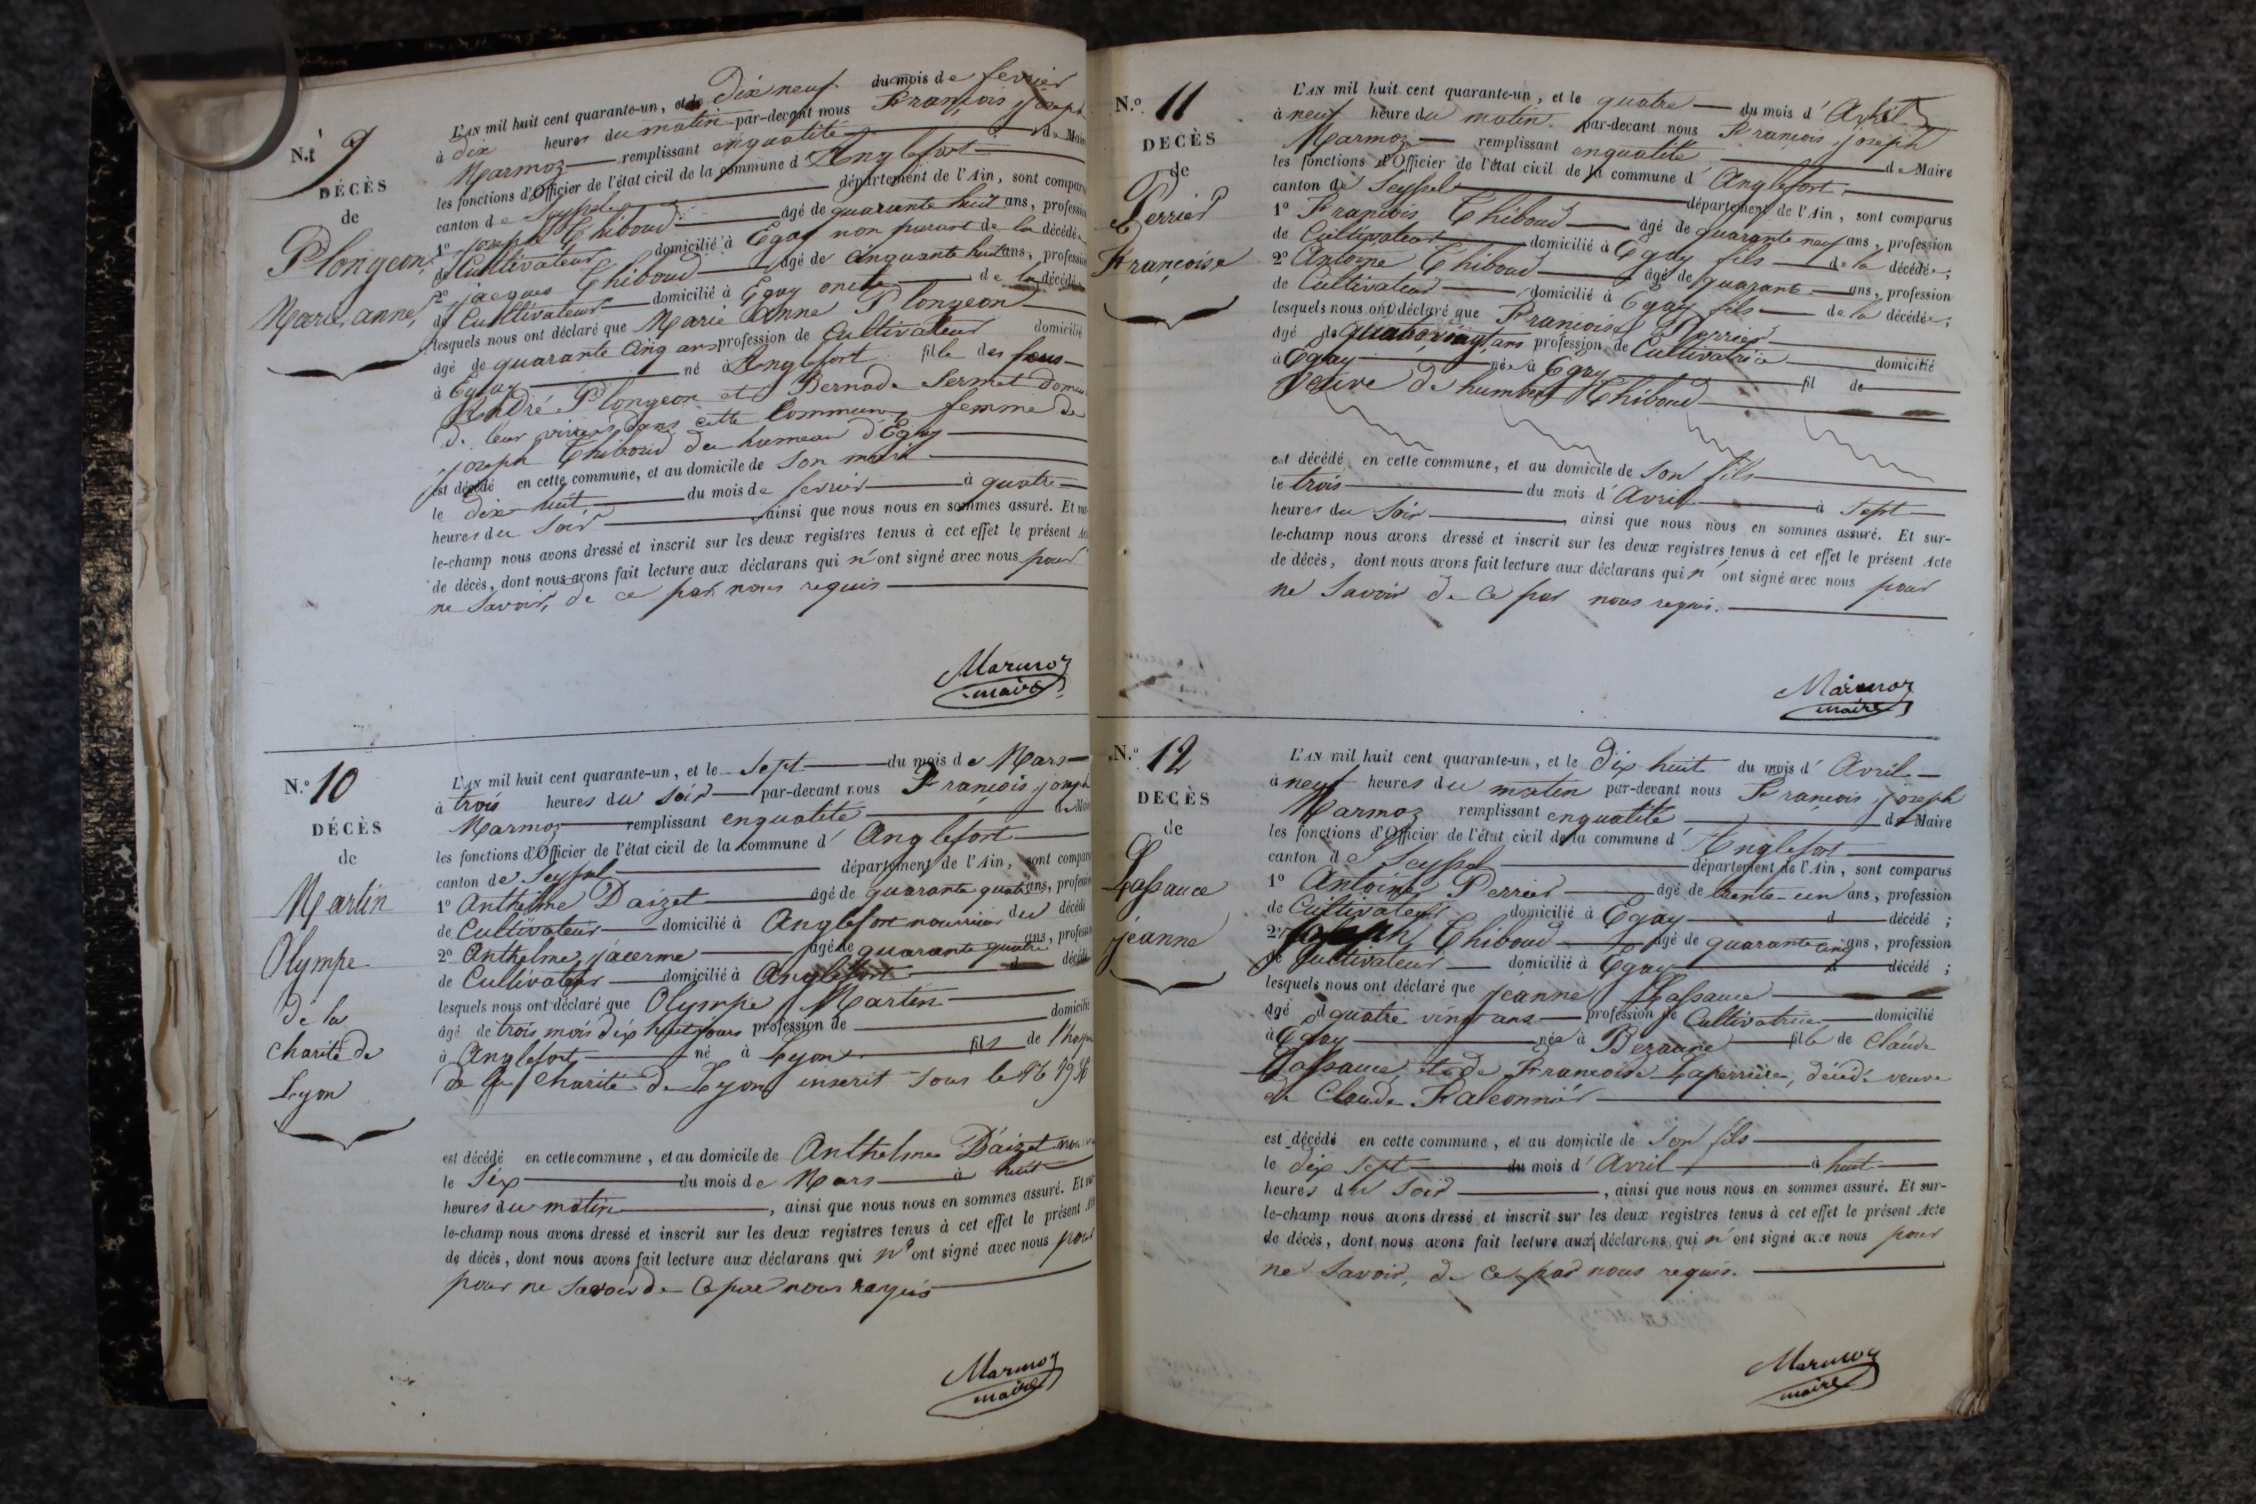 N.º 9
DÉCÈS
de
Plongeon
Marie anne
L'AN mil huit cent quarante-un, et le Dix neuf du mois de fevrier
à dix heures du matin par-devant nous François joseph
Marmoz remplissant enqualité de Maire
les fonctions d'Officier de l'état civil de la commune d'Anglefort
canton de Seyssel département de l'Ain, sont comparus
1º joseph Thiboud âgé de quarante huit ans, profession
de Cultivateur domicilié à Egay non parent de la décédée
2º jacques Thiboud âgé de cinquante huit ans, profession
de Cultivateur domicilié à Egay oncle de la décédée
lesquels nous ont déclaré que Marie Anne Plongeon
âgé de quarante cinq ans profession de Cultivateur domicilié
à Egay né à Anglefort fille des feus
André Plongeon et Bernade Sermet
de leur vivans dans cette Commune, femme de
joseph Thiboud du hameau d'Egay
est décédé en cette commune, et au domicile de son mari
le dix huit du mois de fevrier à quatre
heures du soir ainsi que nous nous en sommes assuré. Et sur-
le-champ nous avons dressé et inscrit sur les deux registres tenus à cet effet le présent Acte
de décès, dont nous avons fait lecture aux déclarans qui n'ont signé avec nous pour
ne savoir, de ce par nous requis
Marmoz
maire
N.º 10
DÉCÈS
de
Martin
Olympe
de la
charité de
Lyon
L'AN mil huit cent quarante-un, et le Sept du mois de Mars
à trois heures du soir par-devant nous François joseph
Marmoz remplissant enqualité de Maire
les fonctions d'Officier de l'état civil de la commune d'Anglefort
canton de Seyssel département de l'Ain, sont comparus
1º Anthelme Daizet âgé de quarante quatre ans, profession
de Cultivateur domicilié à Anglefort nourricier du décédé
2º Anthelme jacerme âgé de quarante quatre ans, profession
de Cultivateur domicilié à Anglefort d décédé
lesquels nous ont déclaré que Olympe Martin
âgé de trois mois dix huit jours profession de domicilié
à Anglefort né à Lyon fils de l'hospice
de la Charité de Lyon inscrit sous le
est décédé en cette commune, et au domicile de Anthelme Daizet
le Six du mois de Mars à huit
heures du matin, ainsi que nous nous en sommes assuré. Et sur-
le-champ nous avons dressé et inscrit sur les deux registres tenus à cet effet le présent Acte
de décès, dont nous avons fait lecture aux déclarans qui n'ont signé avec nous pour
pour ne savoir de ce par nous requis
Marmoz
maire
N.º 11
DECÈS
de
Perrier
Françoise
L'AN mil huit cent quarante-un, et le quatre du mois d'Avril
à neuf heure du matin par-devant nous François joseph
Marmoz remplissant enqualité de Maire
les fonctions d'Officier de l'état civil de la commune d'Anglefort
canton de Seyssel département de l'Ain, sont comparus
1º François Thiboud âgé de quarante neuf ans, profession
de Cultivateur domicilié à Egay fils de la décédée;
2º Antoine Thiboud âgé de quarante ans, profession
de Cultivateur domicilié à Egay fils de la décédée;
lesquels nous ont déclaré que Françoise Perrier
âgé de quatre vingt ans profession de Cultivatrice domicilié
à Egay née à Egay fil de
veuve de humbert Thiboud
est décédé en cette commune, et au domicile de son fils
le trois du mois d'Avril à sept
heures du soir, ainsi que nous nous en sommes assuré. Et sur-
le-champ nous avons dressé et inscrit sur les deux registres tenus à cet effet le présent Acte
de décès, dont nous avons fait lecture aux déclarans qui n'ont signé avec nous pour
ne savoir de ce par nous requis.
Marmoz
maire
N.º 12
DECÈS
de
Lassauce
jeanne
L'AN mil huit cent quarante-un, et le Dix huit du mois d'Avril
à neuf heures du matin par-devant nous François joseph
Marmoz remplissant enqualité de Maire
les fonctions d'Officier de l'état civil de la commune d'Anglefort
canton de Seyssel département de l'Ain, sont comparus
1º Antoine Perrier âgé de trente-un ans, profession
de Cultivateur domicilié à Egay d décédé;
2º joseph Thiboud âgé de quarante cinq ans, profession
de Cultivateur domicilié à Egay d décédé;
lesquels nous ont déclaré que jeanne Lassauce
âgé d quatre vingt ans profession de Cultivatrice domicilié
à Egay née à Bezaune fille de Claude
Lassauce et de Françoise Laperrière, décédé veuve
de Claude Falconnier
est décédé en cette commune, et au domicile de son fils
le dix sept du mois d'Avril à huit
heures du soir, ainsi que nous nous en sommes assuré. Et sur-
le-champ nous avons dressé et inscrit sur les deux registres tenus à cet effet le présent Acte
de décès, dont nous avons fait lecture aux déclarans qui n'ont signé avec nous pour
ne savoir, de ce par nous requis.
Marmoz
maire